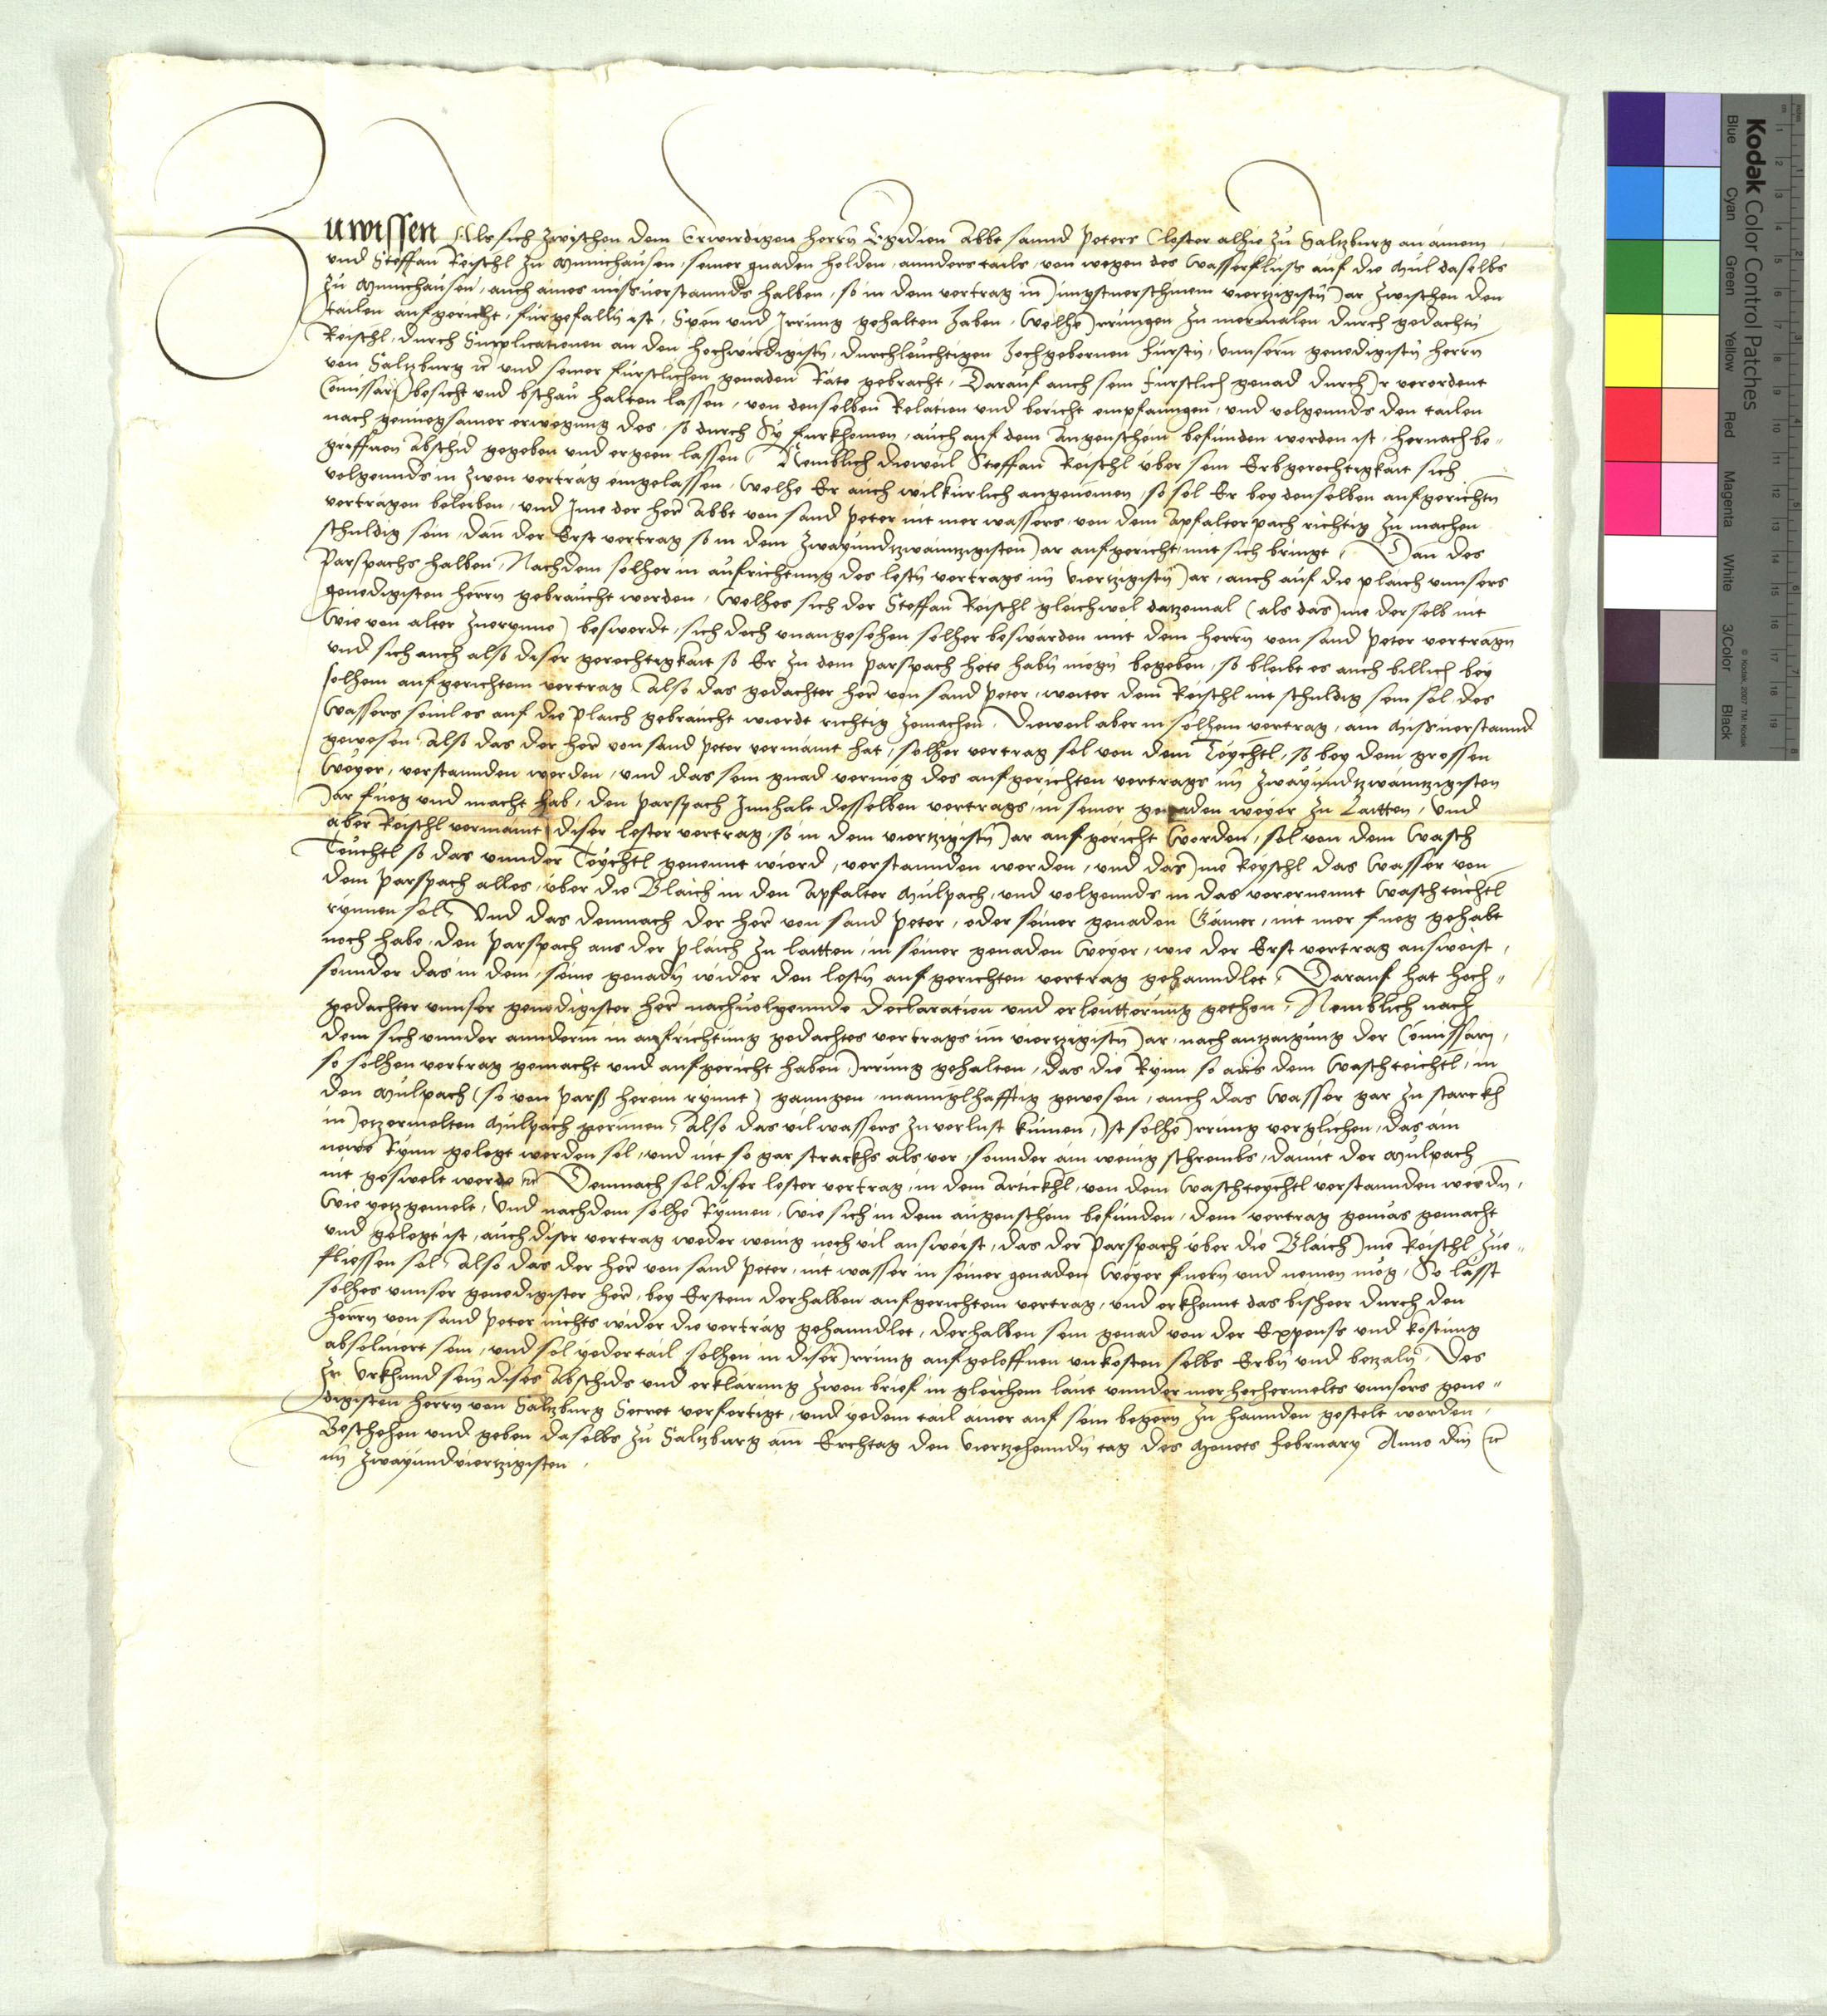 Zuwissen Als sich zwischen dem Erwirdigen herrn Egidien Abbt sannd Peters Closter alhie zu Saltzburg an ainem
und Steffan Reischl zu Munichausen, seiner gnaden holden, annderstails, von wegen des Wasserfluss auf die Mül daselbs
zu Munichausen, auch aines missverstannds halben, so in dem vertrag in jungstuerschinem viertzigistn Jar zwischen den
tailen aufgericht, fürgefalln ist, Spen und Irrung gehalten haben, Welhe Irrungen zu mermalen durch gedachtn
Reischl, durch Supplicationen an den hochwirdigistn, durchleuchtigen hochgebornen fürstn, unnsern genedigistn herrn
von Saltzburg ꝛc und seiner fürstlichen genaden Räte gebracht, Darauf auch sein fürstlich genad durch Ir verordent
Comissarj besicht und bschau halten lassen, von denselben Relation und bericht empfanngen, und volgennds den tailen
nach genuegsamer erwegung des, so durch Sy furkhomen, auch auf dem Augenschein befunden worden ist, hernach be-
griffnen Abschid gegeben und ergeen lassen, Nemblich dieweil Steffan Reischl über sein Erbgerechtigkait sich
volgennds in zwen verträg eingelassen, Welhe Er auch wilkürlich angenomen, so sol Er bey denselben aufgerichtn
verträgen beleiben, und Ime der herr Abbt von sand Peter nit mer wassers, von dem Apfalterpach richtig zu machen
schuldig sein, dan der Erst vertrag so in dem zwayundzwaintzigisten Jar aufgericht, mit sich bringt, Dan des
Parspachs halben, Nachdem solher in aufrichtung des lestn vertrags im viertzigistn Jar, auch auf die plaich unnsers
genedigisten herrn gebraucht worden, Welhes sich der Steffan Reischl gleichwol datzemal (als das Ime derselb nit
Wie von alter zuerynne) beswerdt, sich doch unangesehen solher beswärden mit dem herrn von sand Peter vertragn
und sich auch also diser gerechtigkait so Er zu dem Parspach hete habn mögn begeben, so bleibt es auch billich bey
solhem aufgerichtem vertrag, Also das gedachter herr von sand Peter, weiter dem Reischl nit schuldig sein sol, des
Wassers souil es auf die Plaich gebraucht wierdt richtig zemachen, Dieweil aber in solhem vertrag, ain Missuerstannd
gewesen, Also das der herr von sand Peter vermaint hat, solher vertrag sol von dem Teychtl, so bey dem grossen
Weyer, verstannden werden, und das sein gnad vermög des aufgerichten vertrags im zwayundzwaintzigisten
Jar fueg und macht hab, den Parspach Innhalt desselben vertrags, in seiner genaden weyer zu Laitten, Und
aber Reischl vermaint, diser lester vertrag, so in dem viertzigistn Jar aufgericht worden, sol von dem Wasch
Teuchtl so das unnder Teychtl genennt wierd, verstannden werden, und das Ime Reyschl das Wasser von
dem Parspach alles, über die Blaich in den Apfalter Mülpach, und volgennds in das vorernennt Waschteichtl
rynnen sol, Und das demnach der herr von sand Peter, oder seiner genaden Gämer, nit mer fueg gehabt
noch habe, den Parspach aus der plaich zu laitten, in seiner genaden Weyer, wie der Erst vertrag ausweist,
sonnder das in dem, seine genadn wider den lestn aufgerichten vertrag gehanndlet, Darauf hat hoch-
gedachter unnser genedigister herr nachuolgennde declaration und erleutterung gethon, Nemblich nach
dem sich unnder annderm in aufrichtung gedachtes vertrags im viertzigistn Jar, nach antzaigung der Comissarj,
so solhen vertrag gemacht und aufgericht haben Irrung gehalten, das die Rynn so aus dem Waschteichtl, in
den Mülpach (so von Parß herein rynnt) ganngen, mannglhafftig gewesen, auch das Wasser gar zu starckh
in Jetzermelten Mülpach gerunnen, Also das vil wassers zuverlust kumen, Ist solhe Irrung verglichen, das ain
newe Rynn gelegt werden sol, und nit so gar strackhs als vor, sonnder ain wenig schrembs, damit der Mülpach
nit geswelt werde ꝛc Demnach sol diser lester vertrag, in dem Artickhl, von dem Waschteychtl verstannden werdn,
Wie yetzgemelt, Und nachdem solhe Rynnen, Wie sich in dem augenschein befunden, dem vertrag gemäs gemacht
und gelegt ist, auch diser vertrag weder wenig noch vil ausweist, das der Parspach über die Blaich Ime Reischl zue-
fliessen sol, Also das der herr von sand Peter, nit wasser in seiner genaden Weyer fuern und nemen mög, So lässt
solhes unnser genedigister herr, bey Erstem derhalben aufgerichtem vertrag, und erkhennt das bisheer durch den
herrn von sand Peter nichts wider die verträg gehanndlet, derhalben sein genad von der Expenß und kostung
absoluiert sein, und sol yeder tail solhen in diser Irrung aufgeloffnen unkosten selbs Erbn und betzaln, Des
zu Urkhund sein dises Abschids und erklärung zwen brief in gleichem laut unnder mer hochermelts unnsers gene-
digisten herrn von Saltzburg Secret verfertigt, und yedem tail ainer auf sein begern zu hannden gestelt worden,
Beschehen und geben daselbs zu Saltzburg am Erchtag den viertzehenndn tag des Monets February Anno dni ꝛc
im zwayundviertzigisten.
Kodak Color Control Patches
© Kodak, 2007 TM: Kodak
Blue Cyan Green Yellow Red Magenta White 3/Color Black